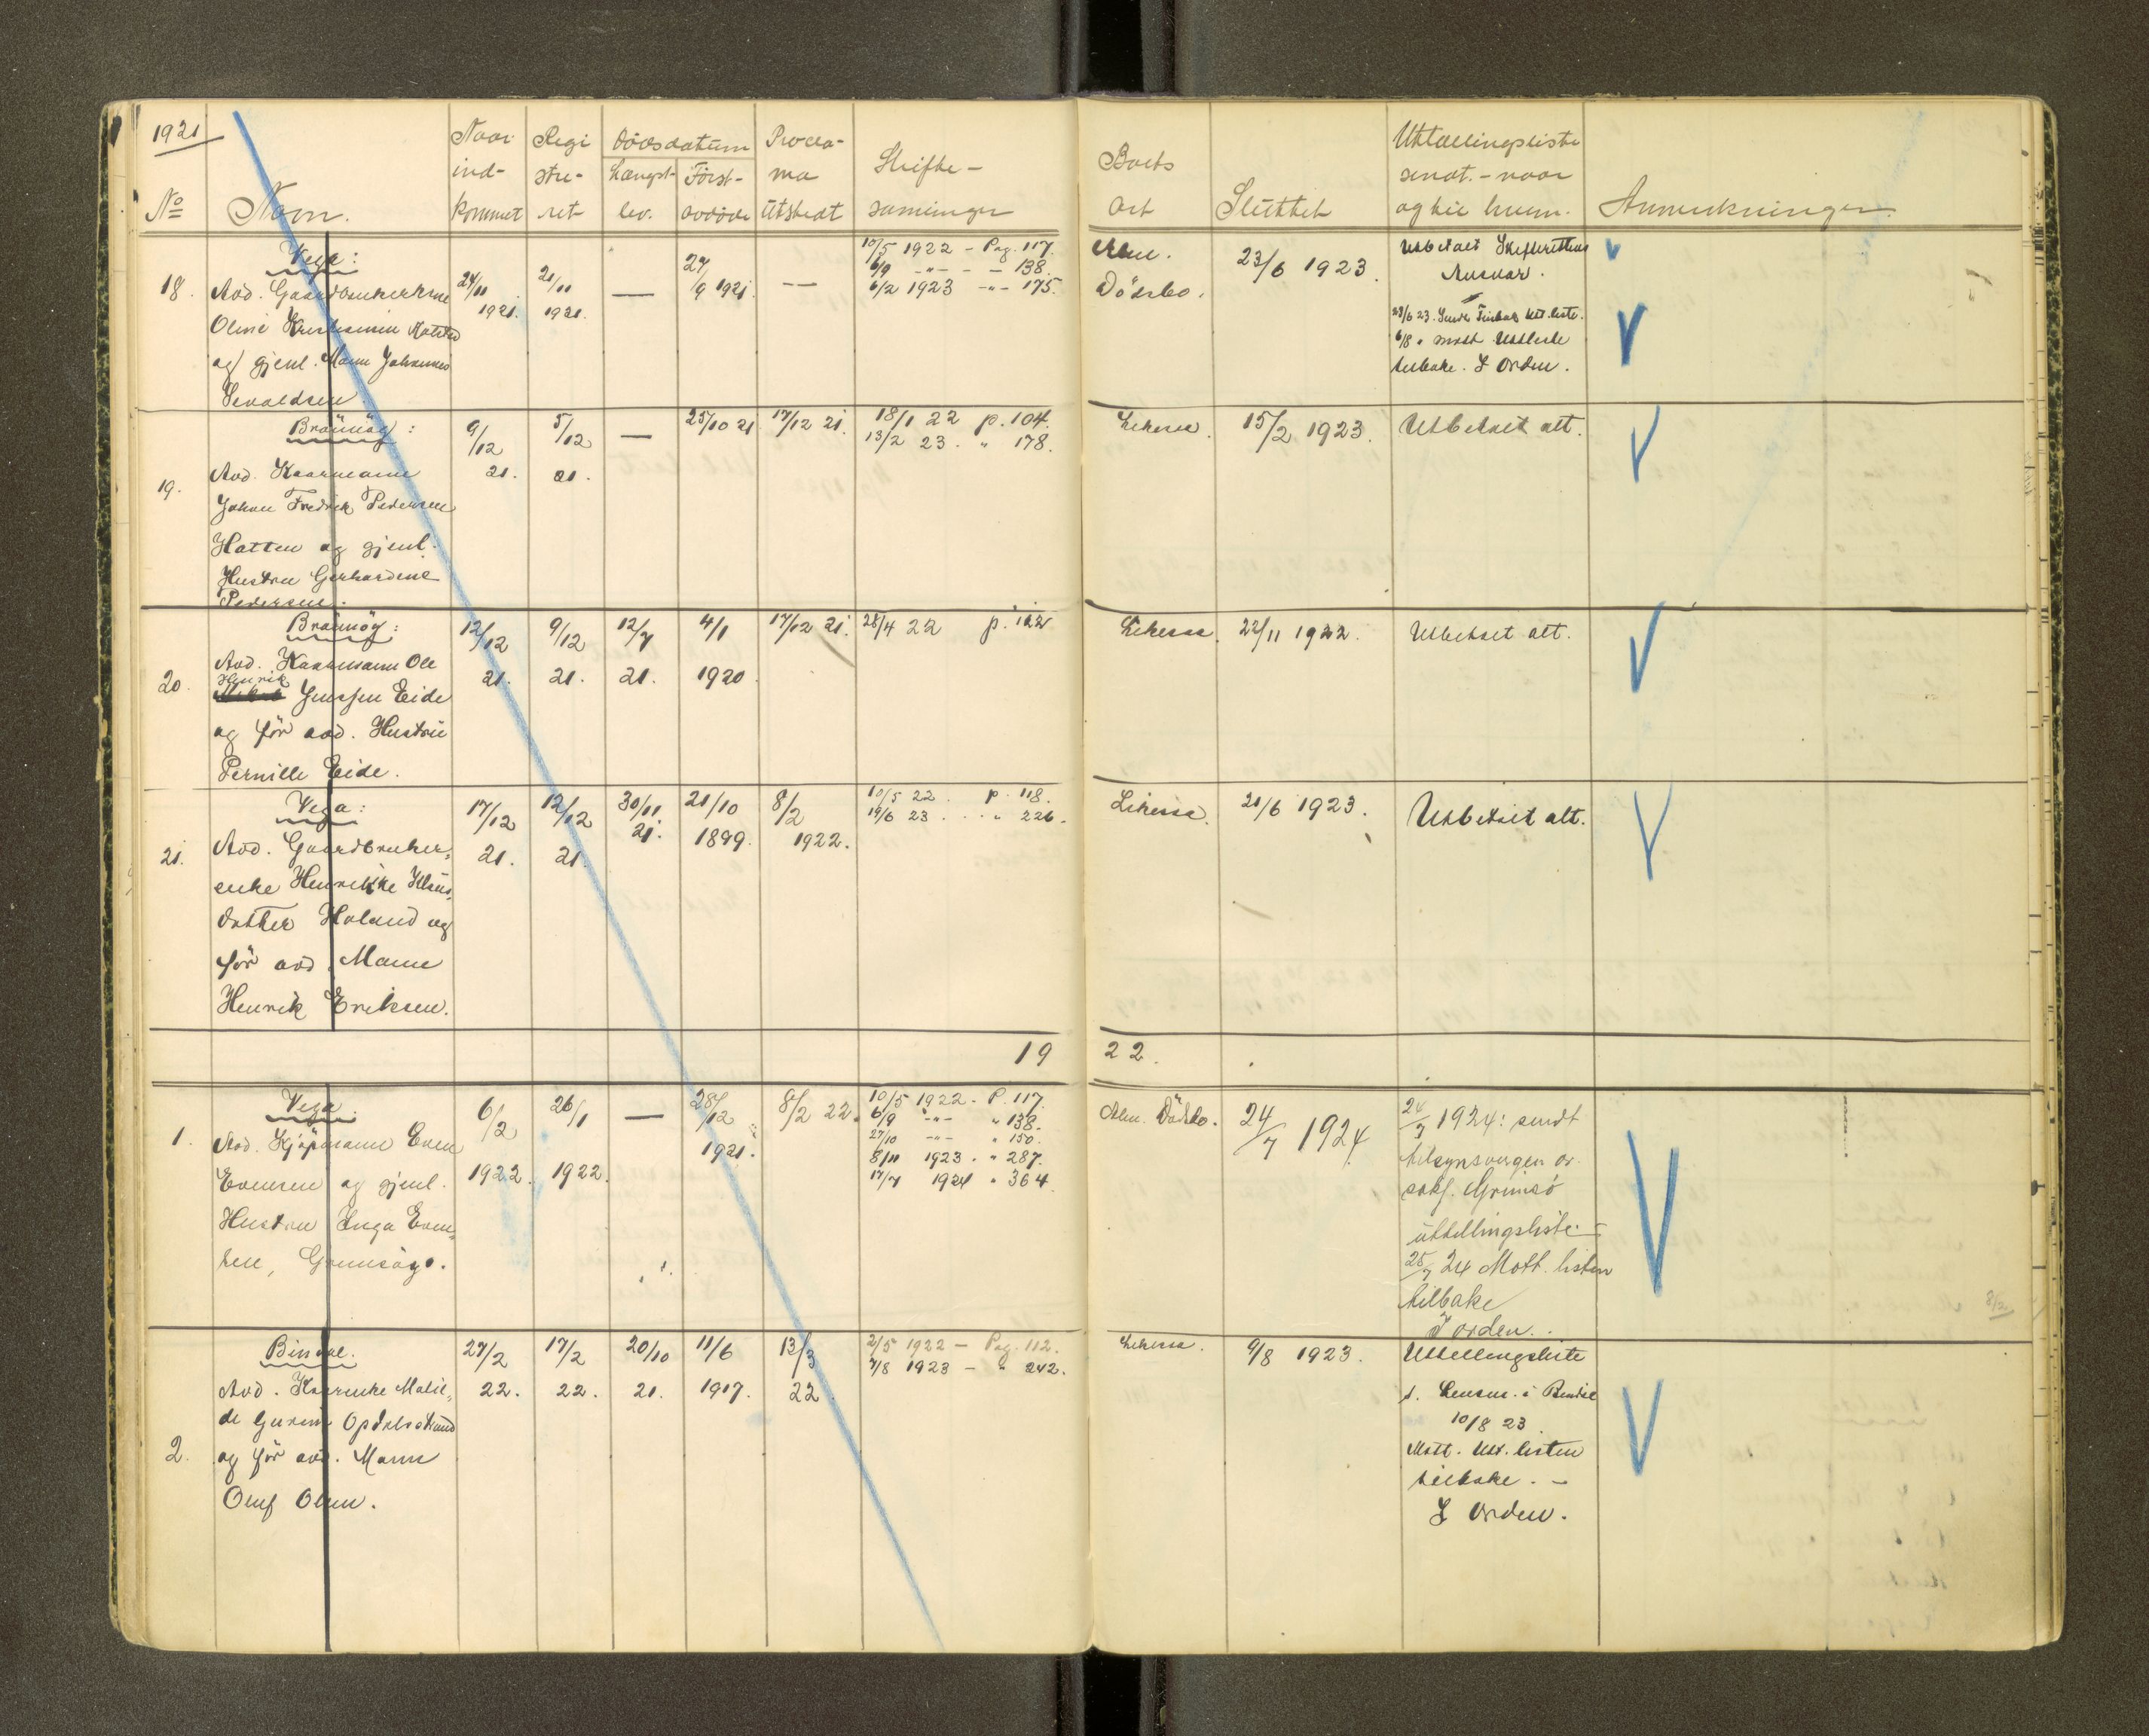 1921
No
Navn.
Naar
ind-
kommet
Regi
stre-
ret
Dødsdatum
Længst-
lev.
Först-
avdöde
Procla-
ma
Utstedt
Skifte-
samlinger
Boets
Art
Sluttet
Utlællingsliste
sendt. - naar
og til hvem.
Anmerkninger.
18.
Vega:
Avd. Gaardbrukerkone
Oline
og gjenl. Mann Johannes
Sevaldsen.
24/11
1921.
21/11
1921.
—
27/
9 1921
—
10/5 1922 - Pag. 117.
6/9 -"- - - 138.
6/2 1923 -"- 175.
Alm.
Dödsbo.
23/6 1923.
Utbetalt Skifterettens
Ansvar.
6/8 " Mott Utlliste
tilbake. I Orden.
19.
Brönnöy:
Avd. Kaarmann
Johan Fredrik Pedersen
Hatten og gjenl.
Hustru Gerhardine
Pedersen.
9/12
21.
5/12
21.
—
25/10 21
17/12 21.
18/1 22 p. 104.
13/2 23. " 178.
15/2 1923.
Utbetalt alt.
20.
Brönnöy:
Avd. Kaarmann Ole
Henrik
Jenssen Eide
og för avd. Hustru
Pernille Eide.
12/12
21.
9/12
21.
12/7
21.
4/1
1920
17/12 21.
28/4 22 p. 112
22/11 1922.
Utbetalt alt.
21.
Vega:
Avd. Gaardbruker-
enke Henrikke Klaus-
datter Haland og
för avd. Mann
Henrik Eriksen.
17/12
21.
12/12
21
30/11
21.
21/10
1899.
8/2
1922.
10/5 22. p. 118.
19/6 23. " 226.
21/6 1923.
Utbetalt alt.
19 22.
1.
Vega
Avd. Kjöpmann Even
Evensen og gjenl.
Hustru Inga Even-
sen,
6/2
1922.
26/1
1922.
—
28/12
1921.
8/2 22.
10/5 1922 - P. 117.
6/9 -"- " 138.
27/10 -"- " 150.
8/11 1923. " 287.
17/7 1924 " 364
Alm. Dödsbo.
24/7 1924
24/7 1924: sendt
tilsynsvergen or.
sakf. Grimsö
uttellingsliste. -
25/7 24 Mott. listen
tilbake
I orden.
2.
Bindal.
Avd. Kaarenke Malie-
og för avd. Mann
Oluf Olsen.
27/2
22.
17/2
22.
20/10
21.
11/6
1917.
13/3
22.
2/5 1922 - Pag. 112.
7/8 1923 - " 242.
9/8 1923.
Uttellingsliste
s. Lensm. i Bindal
10/8 23
Mott. Utt. listen
tilbake. -
I Orden.